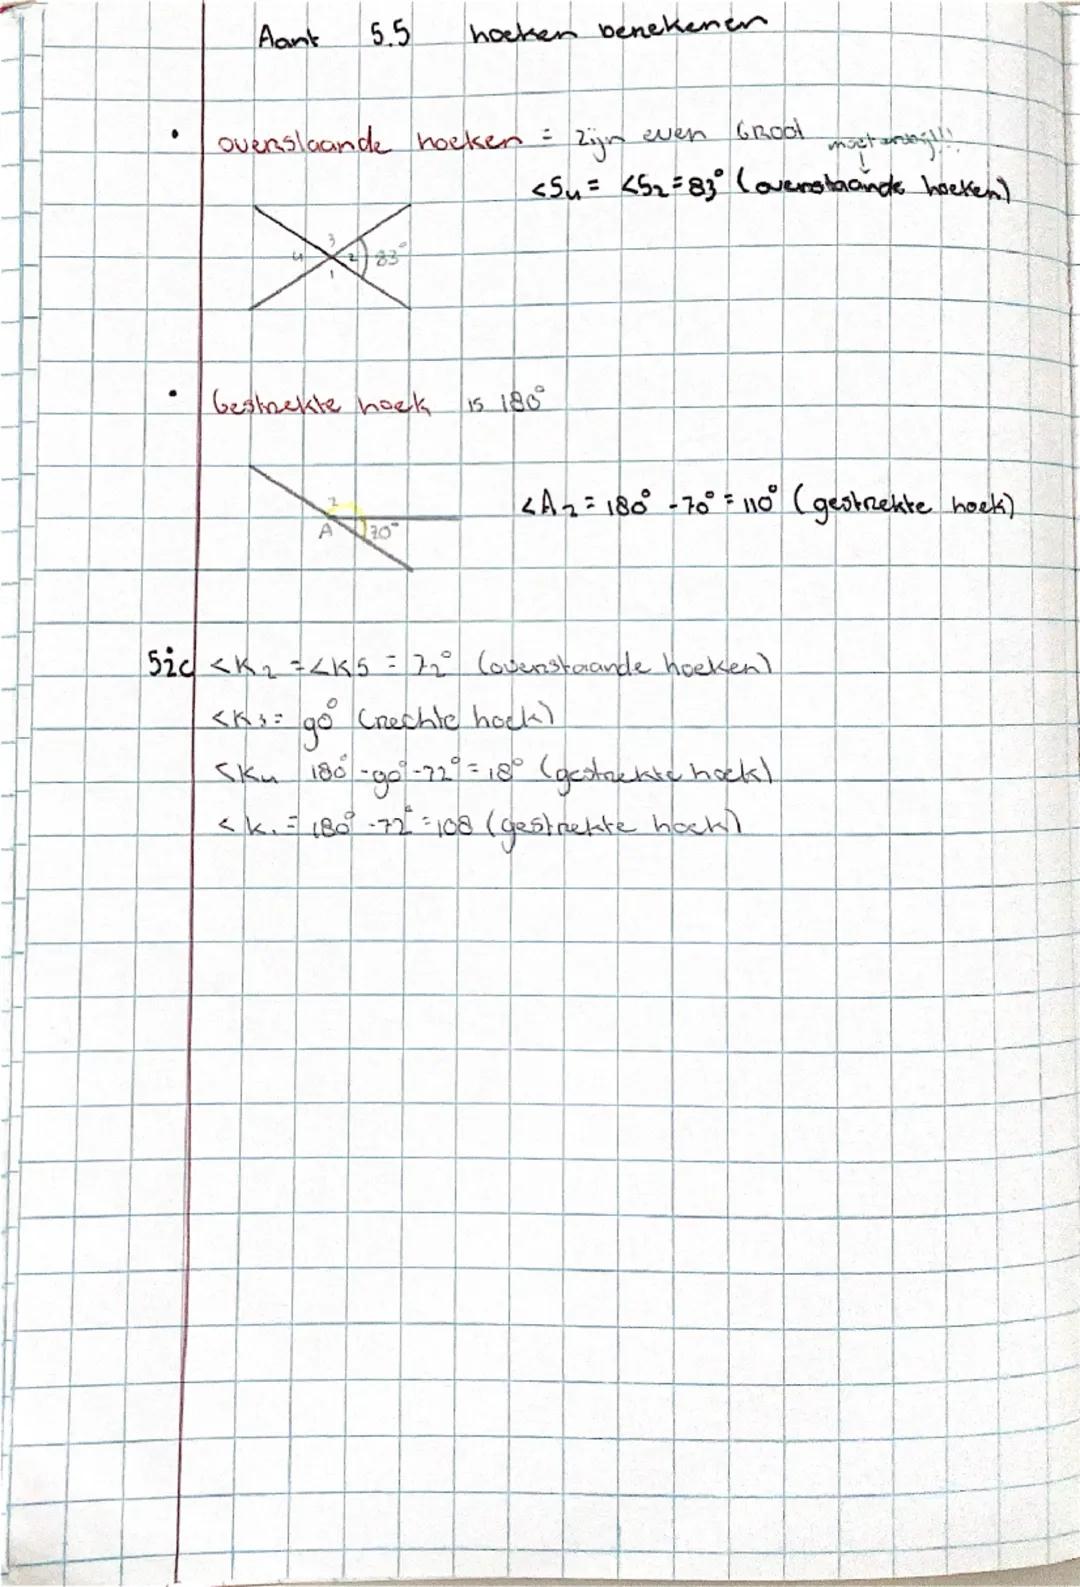 Aant 5.5 hoeken berekenen
• overstaande hoeken = zijn even Groot
moet erbij!!!
<S4 = <S2 = 83° (overstaande hoeken)
3
4 2 83°
1
• Gestrekte hoek is 180°
2
A 70°
<A2 = 180° - 70° = 110° (gestrekte hoek)
52c <K2 = <K5 = 72° (overstaande hoeken)
<K3 = 90° (rechte hoek)
<K4 180° - 90° - 72° = 18° (gestrekte hoek)
<K1 = 180° - 72° = 108 (gestrekte hoek)